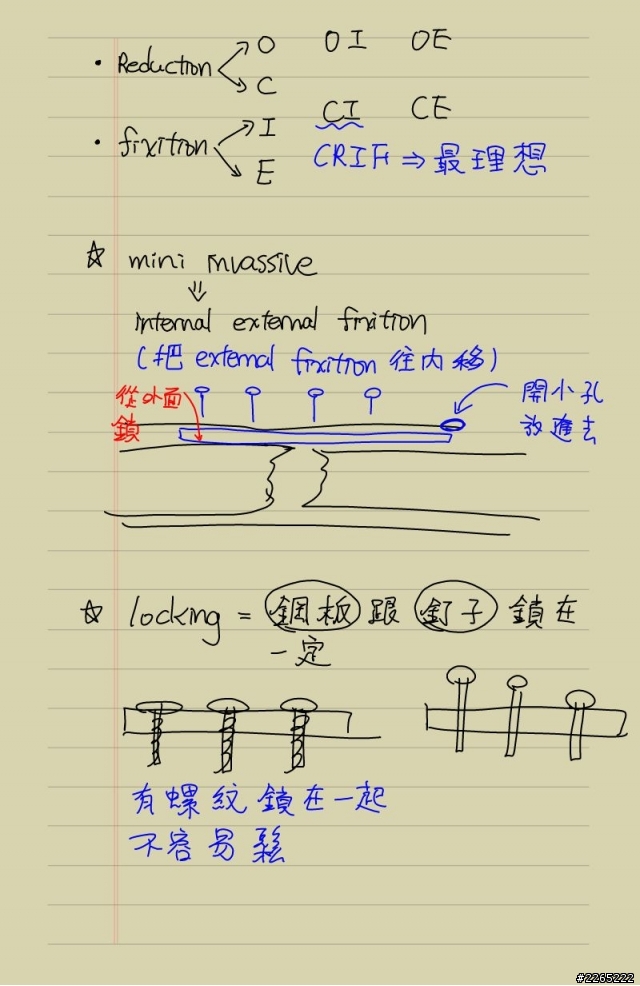 • Reduction O OI OE
C
CI CE
• fixition I
E
CRIF ⇒ 最理想
☆ mini invassive
⇓
internal external fixition
(把 external fixition 往內移)
從外面
鎖
開小孔
放進去
☆ locking = 鋼板 跟 釘子 鎖在
一定
有螺紋鎖在一起
不容易鬆
#2265222